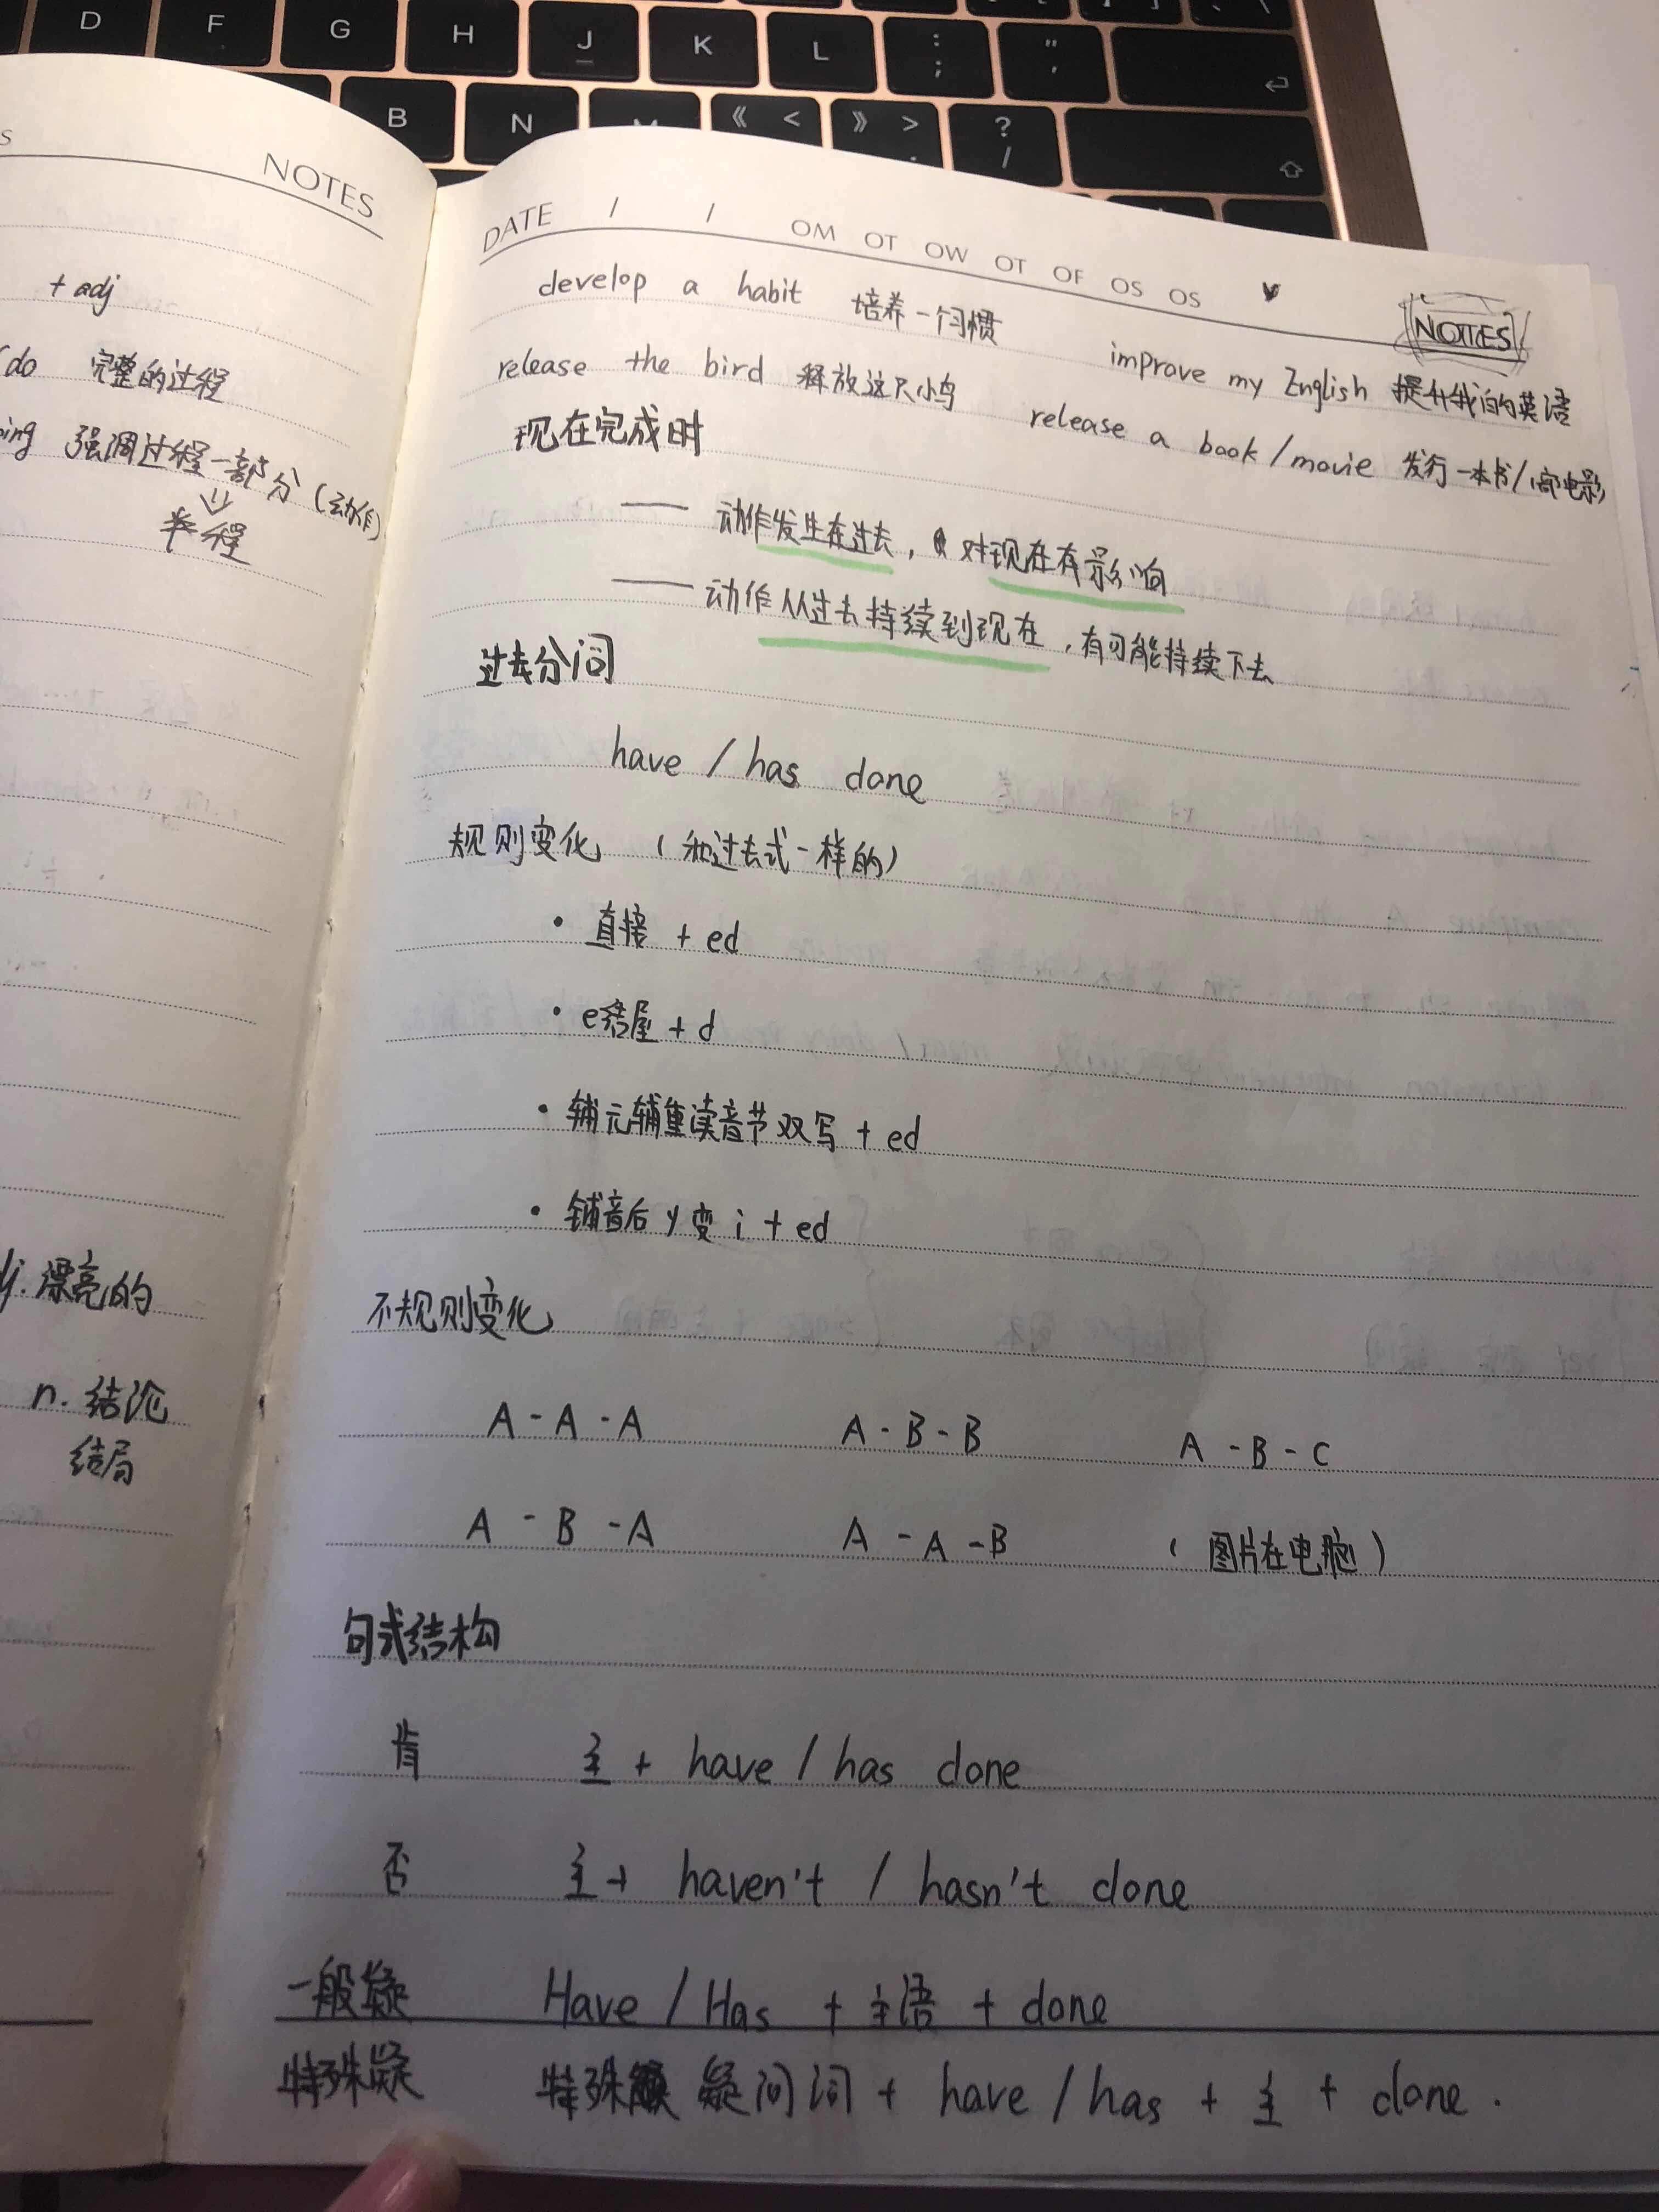 D F G H J K L : ; " '
B N M 《 < 》 > . ? /
S NOTES
+ adj
do 完整的过程
ing 强调过程一部分 (动作)
半程
j. 漂亮的
n. 结论
结局
DATE / / OM OT OW OT OF OS OS NOTES
develop a habit 培养一个习惯
improve my English 提升我的英语
release the bird 释放这只小鸟
release a book / movie 发行一本书/部电影
现在完成时
—— 动作发生在过去，对现在有影响
—— 动作从过去持续到现在，有可能持续下去
过去分词
have / has done
规则变化 （和过去式一样的）
· 直接 + ed
· e结尾 + d
· 辅元辅重读音节双写 + ed
· 辅音后 y 变 i + ed
不规则变化
A - A - A A - B - B A - B - C
A - B - A A - A - B （图片在电脑）
句式结构
肯 主 + have / has done
否 主 + haven't / hasn't done
一般疑 Have / Has + 主语 + done
特殊疑 特殊疑问词 + have / has + 主 + done .